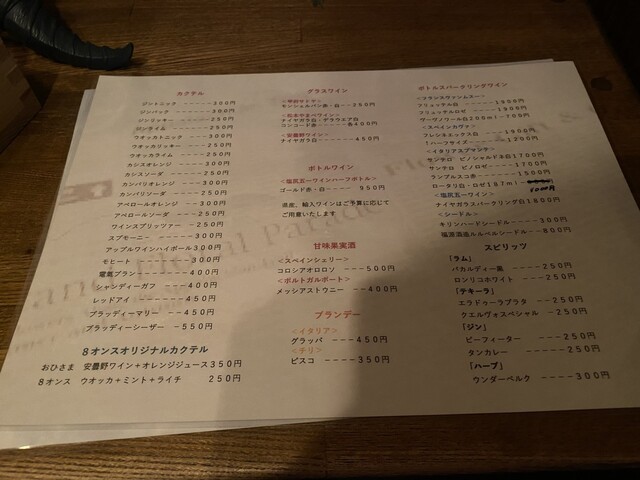 カクテル
ジントニック ------300円
ジンバック -----300円
ジンリッキー -----250円
ジンライム -----250円
ウオッカトニック ---300円
ウオッカリッキー ---250円
ウオッカライム ----250円
カシスオレンジ ----300円
カシスソーダ -----250円
カンパリオレンジ ---300円
カンパリソーダ ----250円
アペロールオレンジ --300円
アペロールソーダ ---250円
ワインスプリッツァー -250円
スプモーニ- -----300円
アップルワインハイボール300円
モヒート ------300円
電氣ブラン------400円
シャンディーガフ ---400円
レッドアイ ------450円
ブラッディーマリー --450円
ブラッディーシーザー -550円
8オンスオリジナルカクテル
おひさま 安曇野ワイン+オレンジジュース350円
8オンス ウオッカ+ミント+ライチ 250円
グラスワイン
コンコード赤----各400円
<安曇野ワイン>
ナイヤガラ白------450円
ボトルワイン
<塩尻五一ワインハーフボトル>
ゴールド赤・白--- 950円
県産、輸入ワインはご予算に応じて
ご用意いたします
甘味果実酒
<スペインシェリー>
コロシアオロロソ ---500円
<ポルトガルポート>
メッシアストウニー --400円
ブランデー
<イタリア>
グラッパ ----450円
<チリ>
ピスコ ----350円
ボトルスパークリングワイン
フリュッテル白 -----1900円
フリュッテルロゼ ----1900円
<スペインカヴァ>
フレシネックス白 ----1900円
<イタリアスプマンテ>
サンテロ ピノシャルドネ白1700円
サンテロ ピノロゼ---1700円
ランブルスコ赤 -----1500円
ロータリ白・ロゼ187ml
1000円
<塩尻五一ワイン>
ナイヤガラスパークリング白1800円
<シードル>
キリンハードシードル----300円
スピリッツ
「ラム」
バカルディー黒 ---250円
ロンリコホワイト --250円
「テキーラ」
エラドゥーラプラタ -250円
クエルヴォスペシャル -250円
「ジン」
ビーフィーター ---250円
タンカレー ----250円
「ハーブ」
ウンダーベルク ---300円